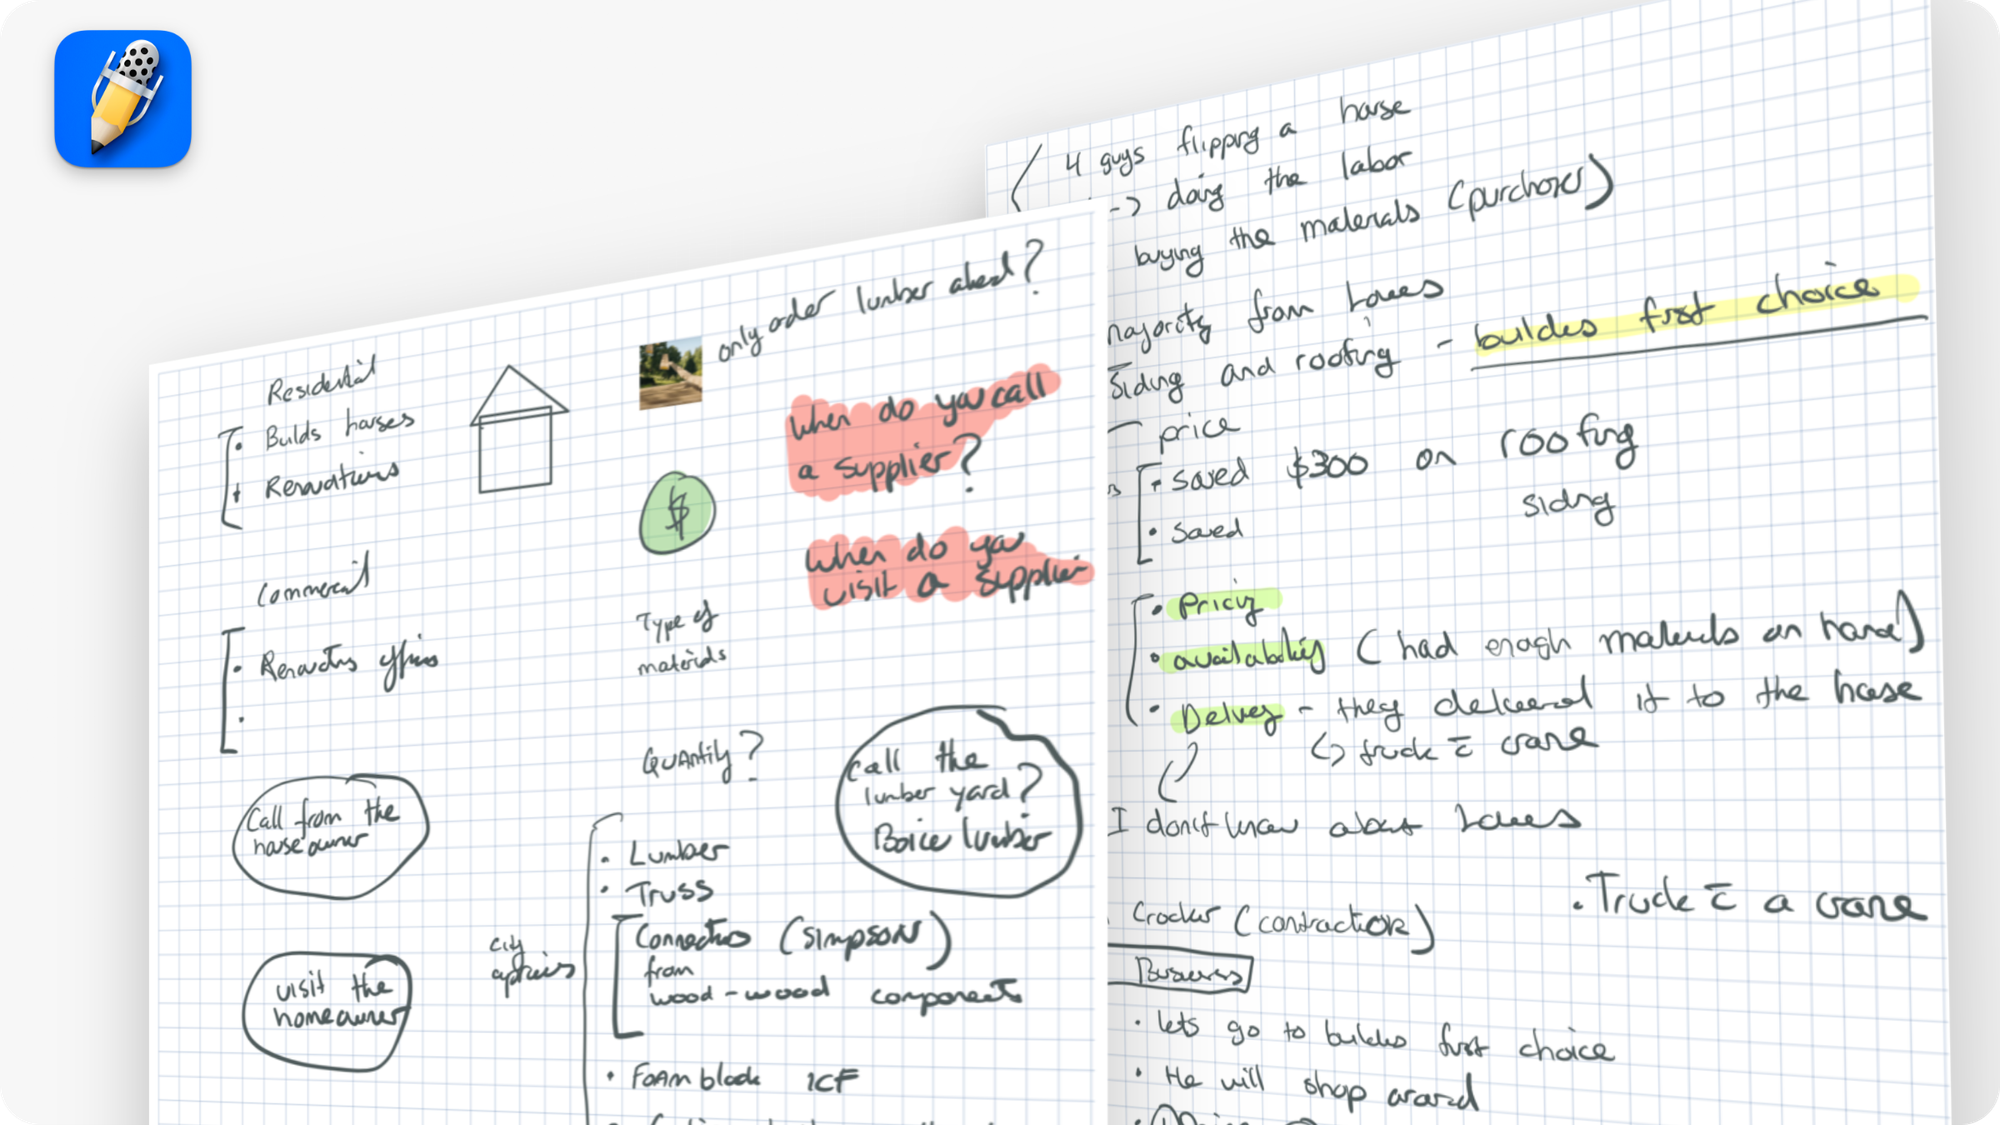 Residential
• Builds houses
+ Renovations
only order lumber ahead?
when do you call
a supplier?
when do you
visit a supplier
$
Commercial
• Renovates offices
•
Type of
materials
Quantity?
Call from the
house owner
Call the
lumber yard?
Boice lumber
visit the
homeowner
city
• Lumber
• Truss
Connectors (SIMPSON)
from
wood - wood components
• Foam block ICF
4 guys flipping a house
-> doing the labor
buying the materials (purchaser)
majority from Lowes
Siding and roofing - builders first choice
price
• saved $300 on roofing
siding
• saved
• Pricing
• availability (had enough materials on hand)
• Delivery - they delivered it to the house
↳ truck c̅ crane
I don't know about Lowes
• Truck c̅ a crane
Crocker (contractor)
Business
• lets go to builders first choice
• He will shop around